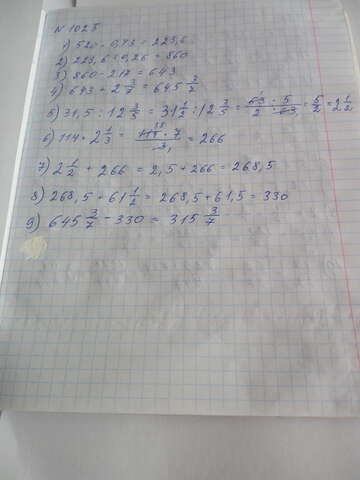 N 1025
1) 520 · 0,43 = 223,6
2) 223,6 : 0,26 = 860
3) 860 - 217 = 643
4) 643 + 2 3/7 = 645 3/7
5) 31,5 : 12 3/5 = 31 1/2 : 12 3/5 = 63 · 5 / 2 · 63 = 5/2 = 2 1/2
6) 114 · 2 1/3 = 114 · 7 / 3 = 266
7) 2 1/2 + 266 = 2,5 + 266 = 268,5
8) 268,5 + 61 1/2 = 268,5 + 61,5 = 330
9) 645 3/7 - 330 = 315 3/7